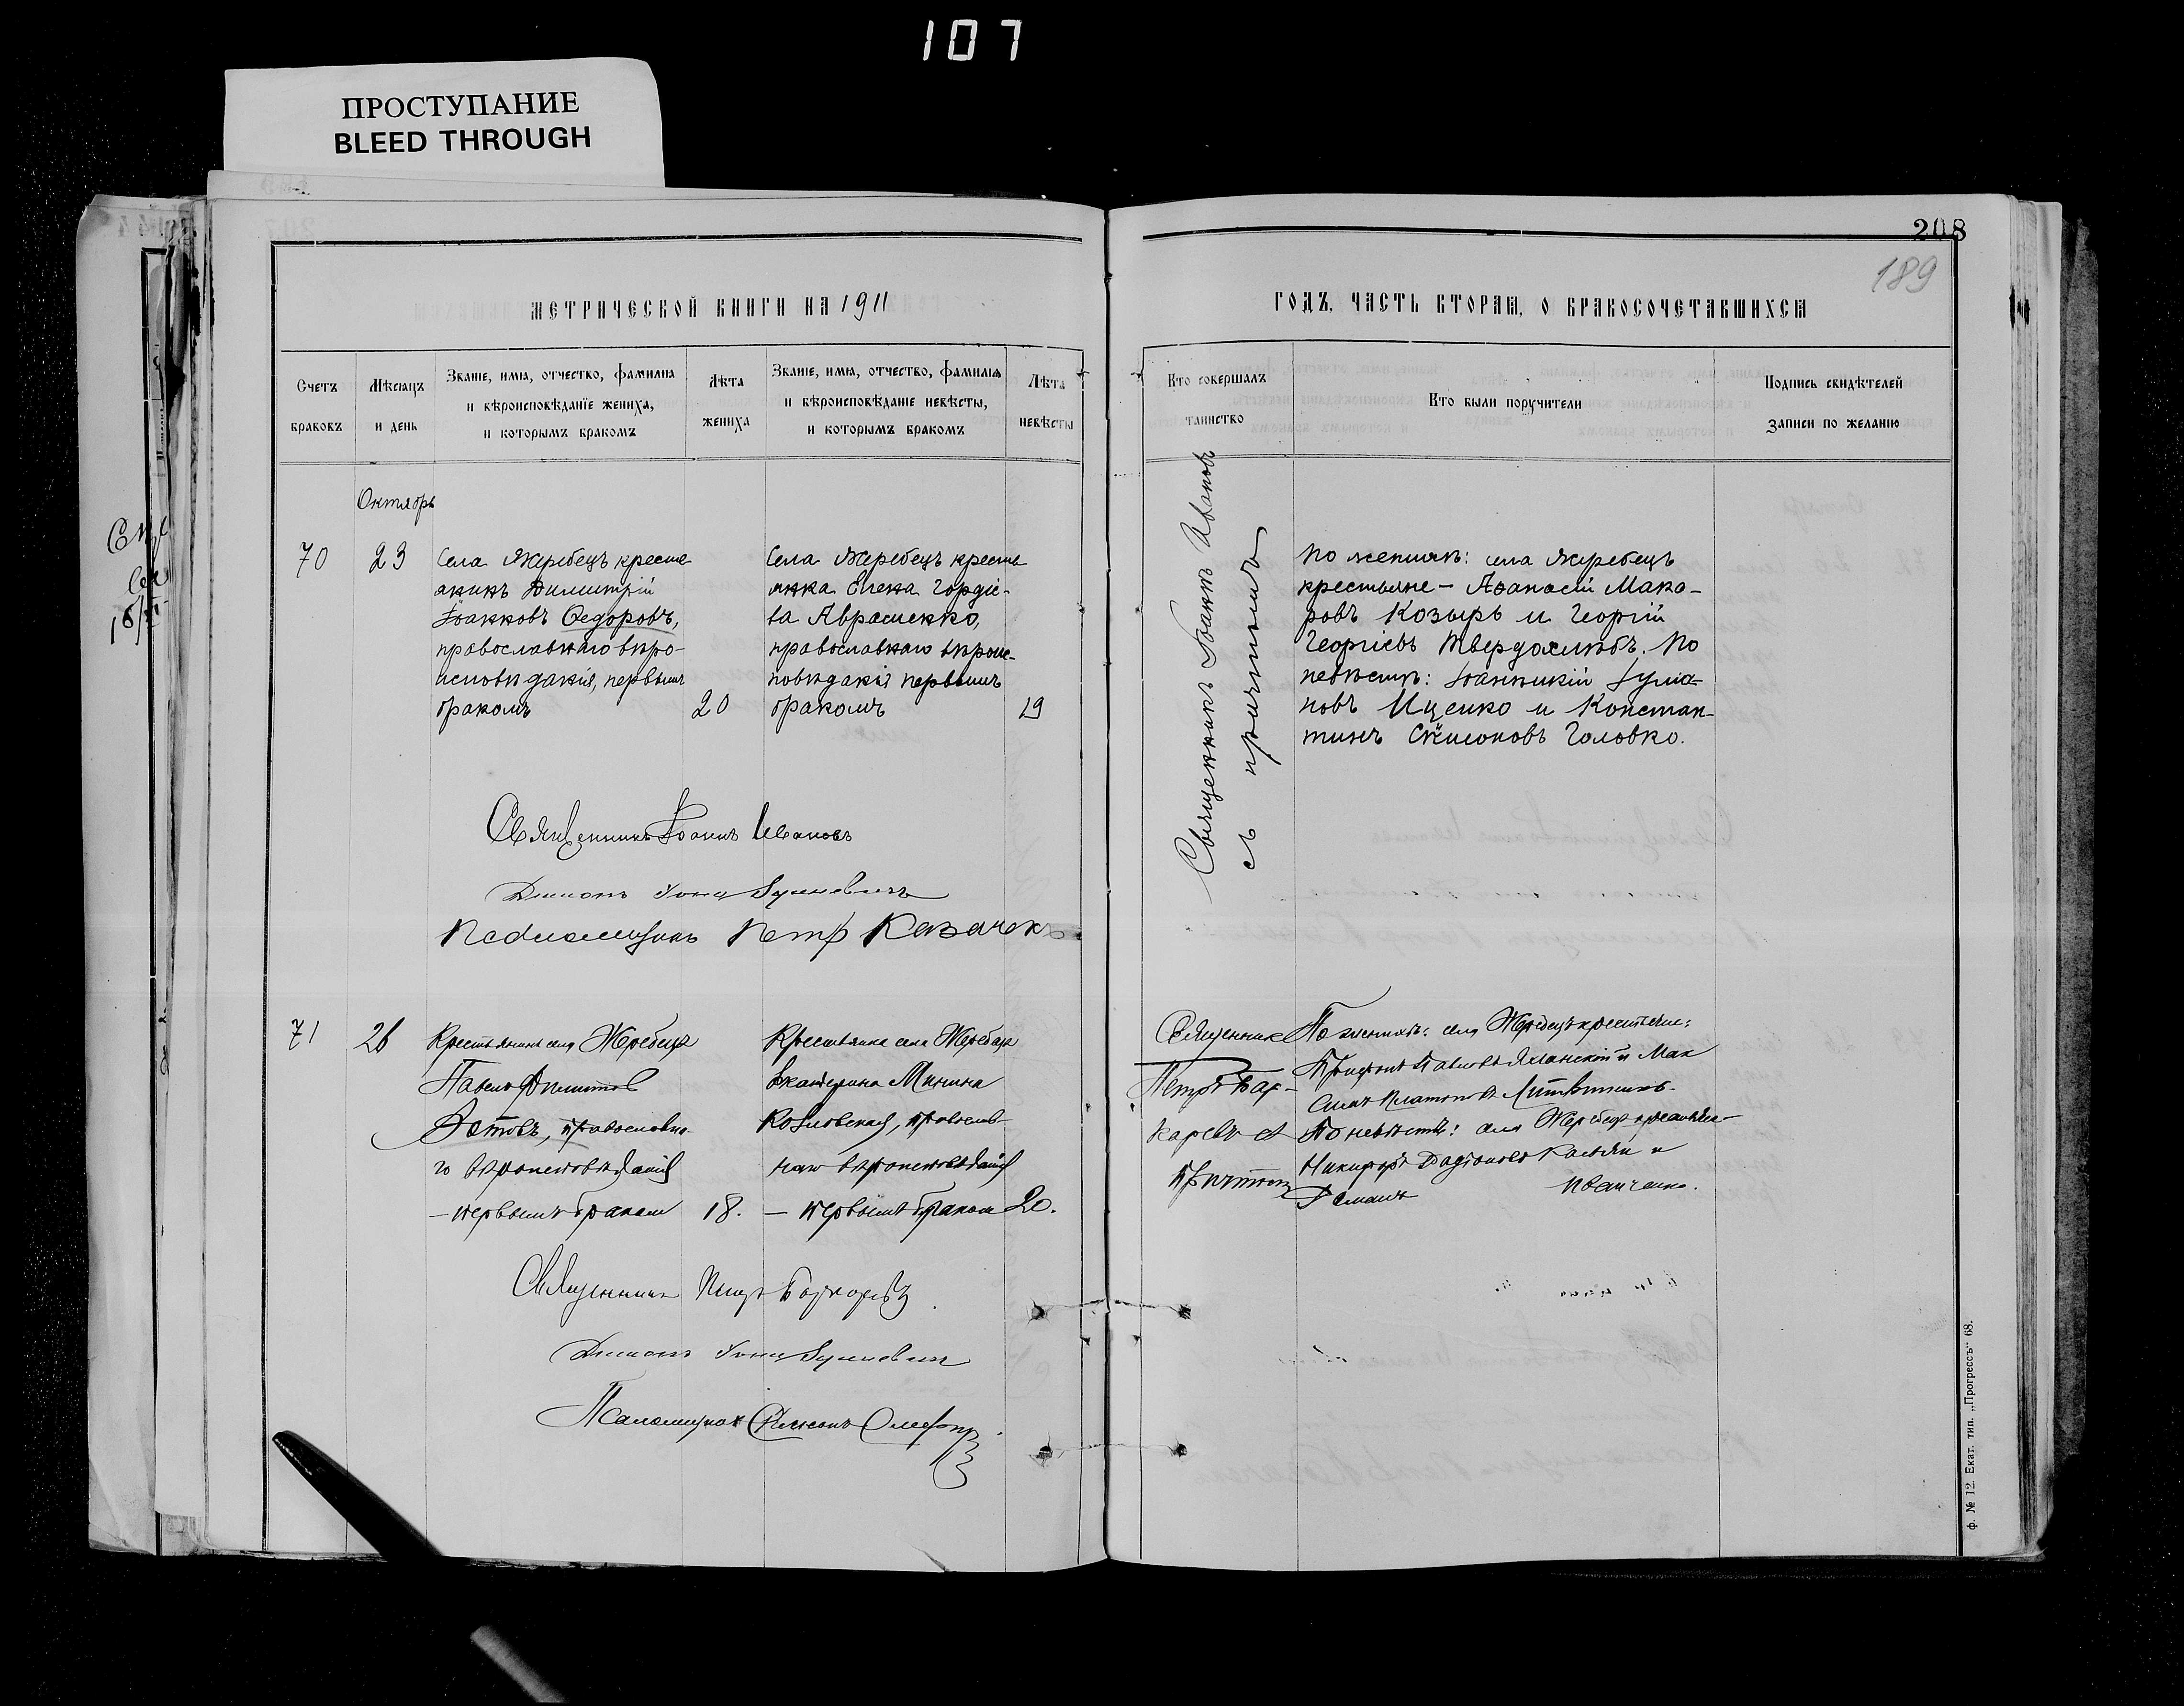 107
ПРОСТУПАНИЕ
BLEED THROUGH
208
189
МЕТРИЧЕСКОЙ КНИГИ НА 1911
ГОДЪ, ЧАСТЬ ВТОРАЯ, О БРАКОСОЧЕТАВШИХСЯ
Счетъ
браковъ
Мѣсяцъ
и день
Званіе, имя, отчество, фамилія
и вѣроисповѣданіе жениха,
и которымъ бракомъ
Лѣта
жениха
Званіе, имя, отчество, фамилія
и вѣроисповѣданіе невѣсты,
и которымъ бракомъ
Лѣта
невѣсты
Кто совершалъ
таинство
Кто были поручители
Подпись свидѣтелей
записи по желанію
Октябрь
70
23
Села Жеребецъ кресть
янинъ Димитрій
Іоанновъ Ѳедоровъ,
православнаго вѣро-
исповѣданія, первымъ
бракомъ
20
Села Жеребецъ кресть
янка Елена Гордіе-
ва Авраменко,
православнаго вѣроис-
повѣданія первымъ
бракомъ
19
Священникъ Іоаннъ Ивановъ
съ причтомъ
По женихѣ: села Жеребецъ
крестьяне - Аѳанасій Мака-
ровъ Козырь и Георгій
Георгіевъ Твердохлѣбъ. По
невѣстѣ: Іоанникій
новъ Иценко и Констан-
тинъ Симоновъ Головко.
Священникъ Іоаннъ Ивановъ
Діаконъ Іона
Псаломщикъ Петр Казачекъ
71
26
Крестьянинъ села Жеребецъ
Павелъ
православна-
го вѣроисповѣданія
- первымъ бракомъ
18.
Крестьянка села Жеребецъ
Екатерина Минина
Козловская, православ-
наго вѣроисповѣданія
- первымъ бракомъ
20.
Священникъ
Петръ Бож-
каревъ съ
причтомъ
По женихѣ: села Жеребецъ крестьяне:
Павловъ и Мак
симъ Платоновъ Литвиненко.
По невѣстѣ: села Жеребецъ крестьяне
Никифоръ и
Романъ Иванченко.
Священникъ Петръ
Діаконъ Іона
Псаломщикъ Симеонъ
Ф. № 12. Екат. тип. „Прогрессъ“ 68.